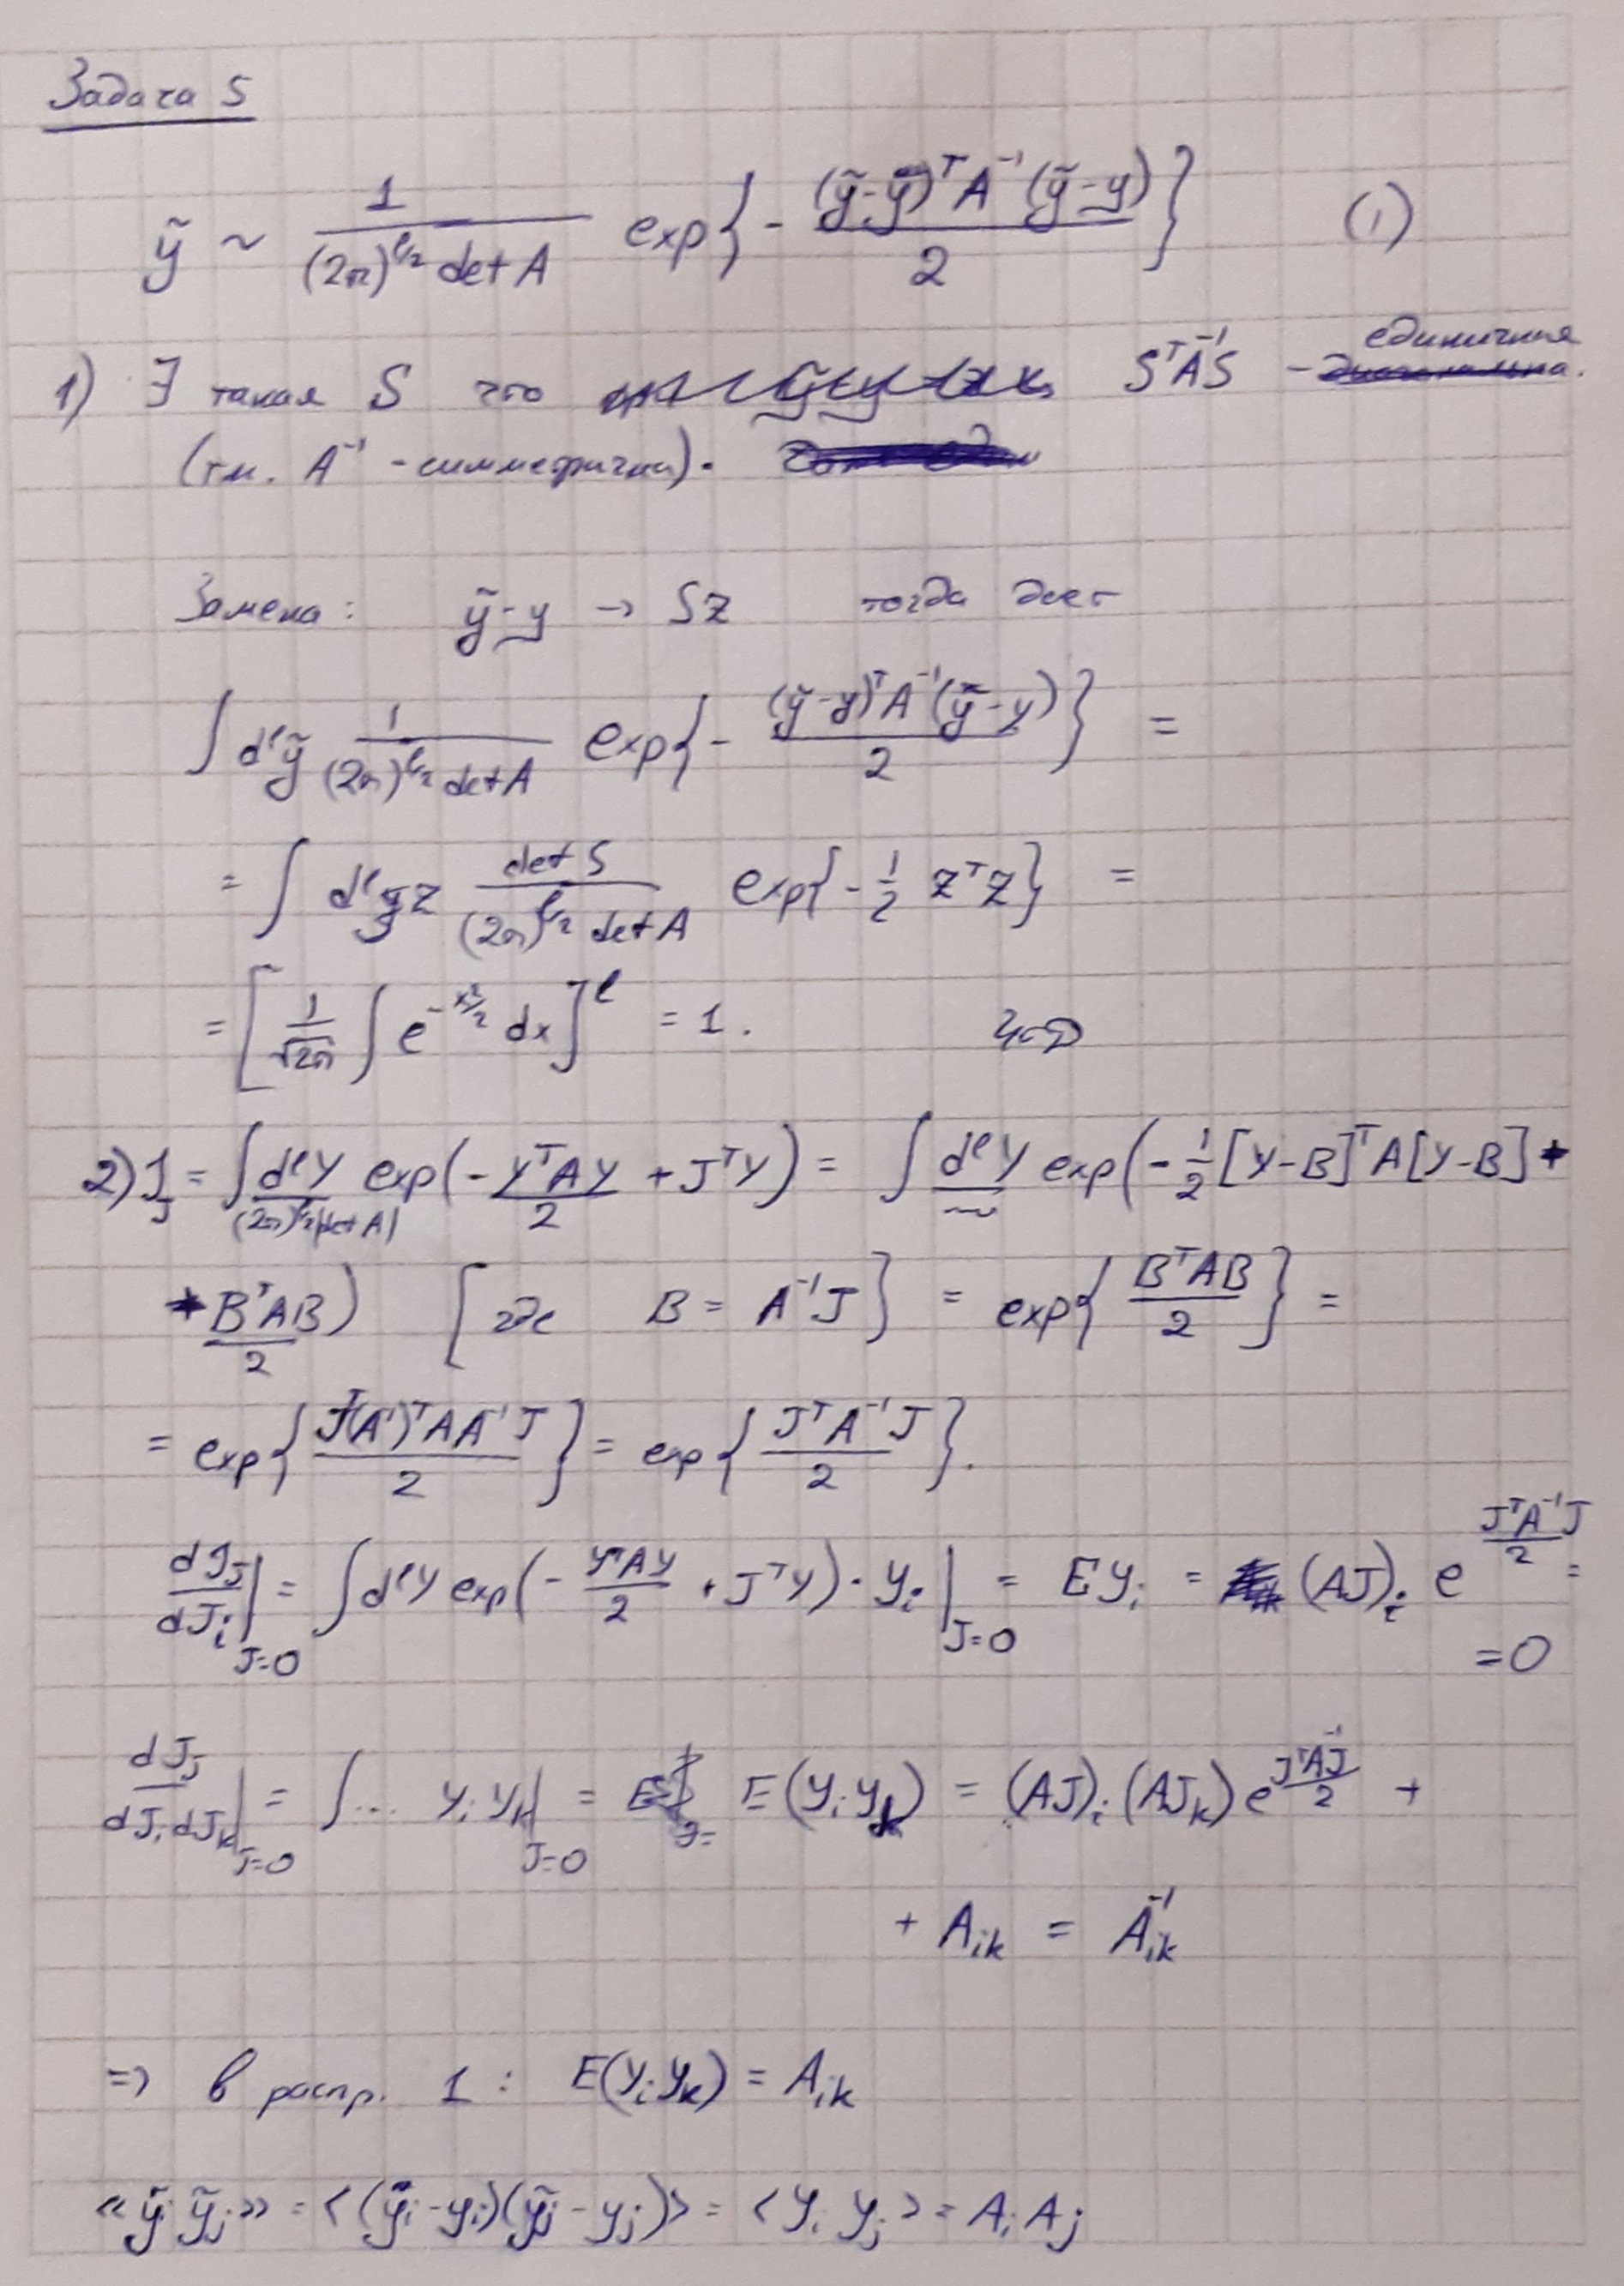 Задача 5
ỹ ~ 1/((2π)^{ℓ/2} det A) exp{ - (ỹ-y)^T A^{-1} (ỹ-y) / 2 } (1)
1) ∃ такая S что S^T A^{-1} S - единичная
(т.к. A^{-1} - симметрична).
Замена: ỹ-y → Sz тогда
∫ d^ℓ ỹ 1/((2π)^{ℓ/2} det A) exp{ - (ỹ-y)^T A^{-1} (ỹ-y) / 2 } =
= ∫ d^ℓ z det S/((2π)^{ℓ/2} det A) exp{ - 1/2 z^T z } =
= [ 1/√2π ∫ e^{-x²/2} dx ]^ℓ = 1. ЧТД
2) J_J = ∫ d^ℓ y/((2π)^{ℓ/2} |det A|) exp( - y^T A y / 2 + J^T y ) = ∫ d^ℓ y exp( - 1/2 [y-B]^T A [y-B] +
+ B^T A B / 2 ) [ где B = A^{-1} J } = exp{ B^T A B / 2 } =
= exp{ J^T (A^{-1})^T A A^{-1} J / 2 } = exp{ J^T A^{-1} J / 2 }.
dJ_J/dJ_i |_{J=0} = ∫ d^ℓ y exp( - y^T A y / 2 + J^T y ) · y_i |_{J=0} = E y_i = (AJ)_i e^{J^T A^{-1} J / 2} =
= 0
dJ_J/(dJ_i dJ_k) |_{J=0} = ∫ ... y_i y_k |_{J=0} = E(y_i y_k) = (AJ)_i (AJ_k) e^{J^T A^{-1} J / 2} +
+ A_{ik} = A^{-1}_{ik}
=> в распр. 1 : E(y_i y_k) = A_{ik}
«ỹ_i ỹ_j» = <(ỹ_i - y_i)(ỹ_j - y_j)> = <y_i y_j> = A_i A_j